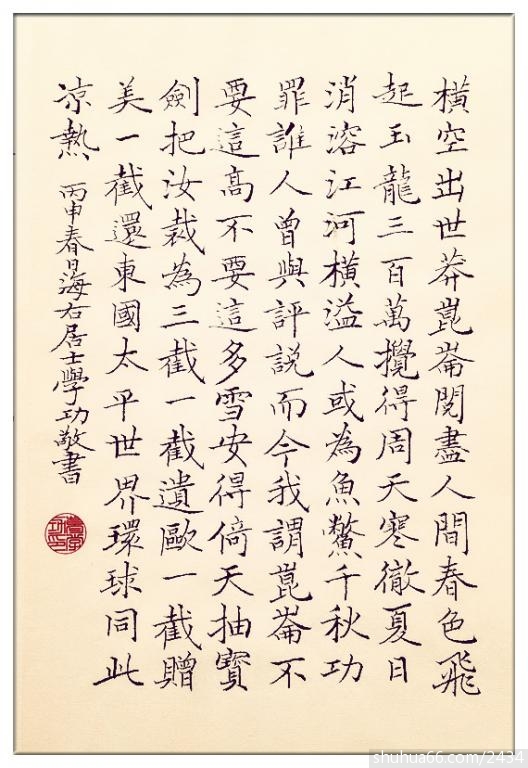 橫空出世莽崑崙閱盡人間春色飛
起玉龍三百萬攪得周天寒徹夏日
消溶江河橫溢人或為魚鱉千秋功
罪誰人曾與評説而今我謂崑崙不
要這高不要這多雪安得倚天抽寳
劍把汝裁為三截一截遺歐一截贈
美一截還東國太平世界環球同此
凉熱
丙申春日海右居士學功敬書
shuhua66.com/2434